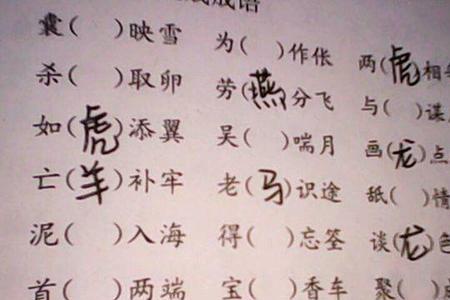 成语
囊( )映雪 为( )作伥 两(虎)相
杀( )取卵 劳(燕)分飞 与( )谋
如(虎)添翼 吴( )喘月 画(龙)点
亡(羊)补牢 老(马)识途 舐( )情
泥( )入海 得( )忘筌 谈(龙)色
首( )两端 宝( )香车 聚( )